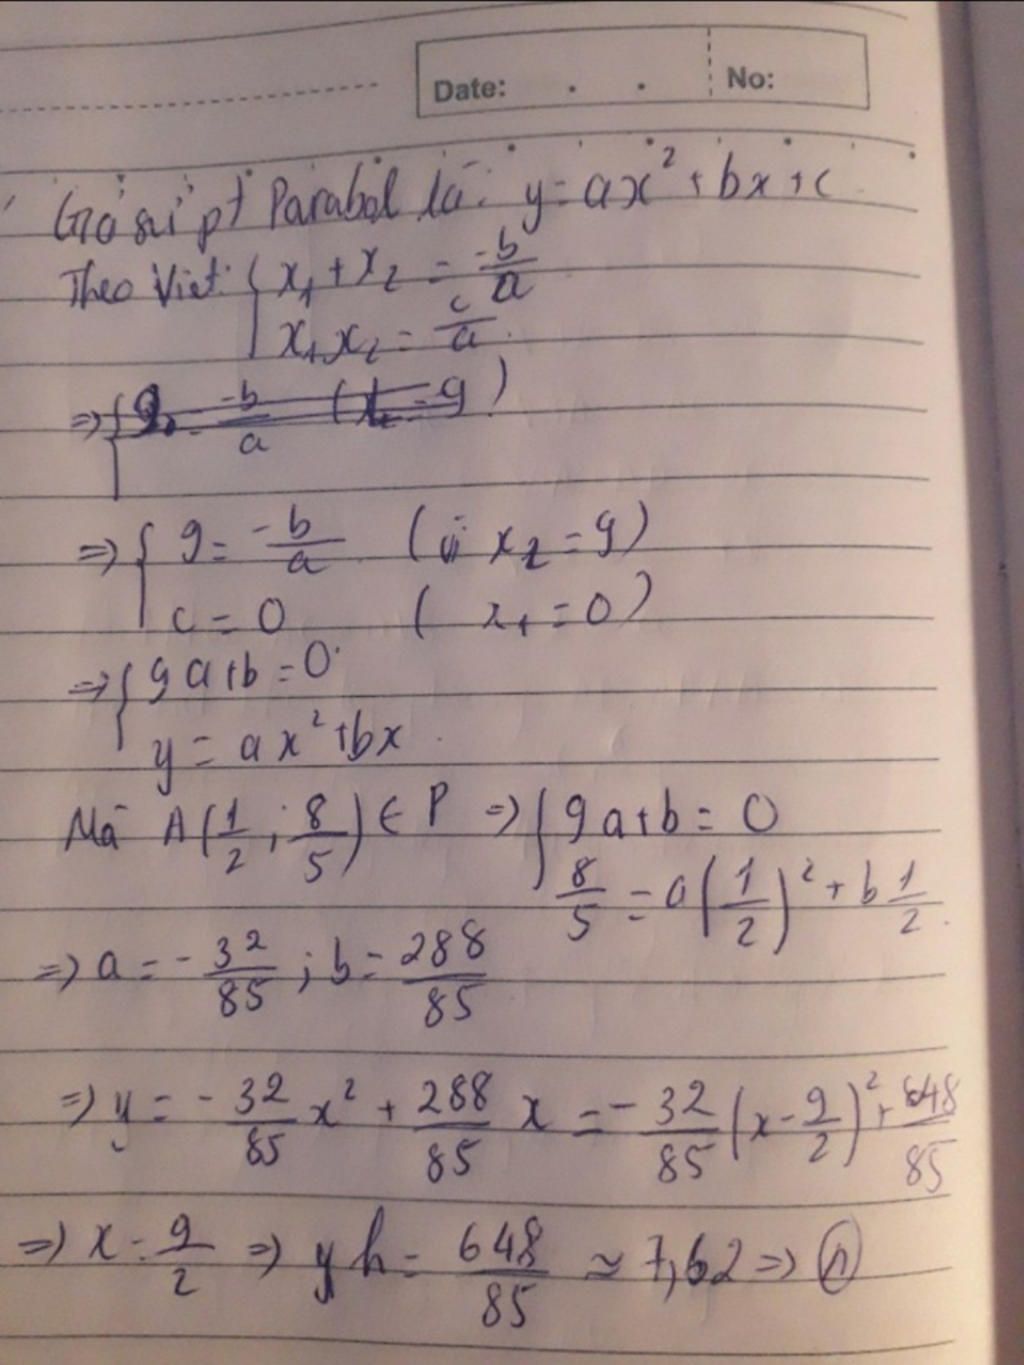 Date: . . No:
Giả sử pt Parabol là: y = ax² + bx + c
Theo Viet: { x₁ + x₂ = -b/a
x₁x₂ = c/a.
=> { 9 = -b/a (x₂ = 9)
=> { 9 = -b/a (vì x₂ = 9)
c = 0 ( x₁ = 0)
=> { 9a+b = 0
y = ax² + bx.
Mà A(1/2 ; 8/5) ∈ P => { 9a+b = 0
8/5 = a(1/2)² + b 1/2.
=> a = - 32/85 ; b = 288/85
=> y = - 32/85 x² + 288/85 x = - 32/85 (x - 9/2)² + 648/85
=> x = 9/2 => y h = 648/85 ≈ 7,62 =>